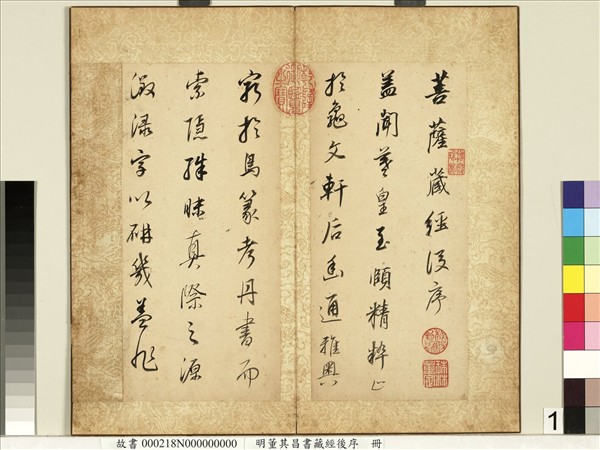 菩薩藏經後序
蓋聞羲皇至賾精粹止
於龜文軒后幽通雅奧
窮於鳥篆考丹書而
索隱殊昧真際之源
徵淥字以研幾蓋非
1
故書 000218N000000000 明董其昌書藏經後序 冊